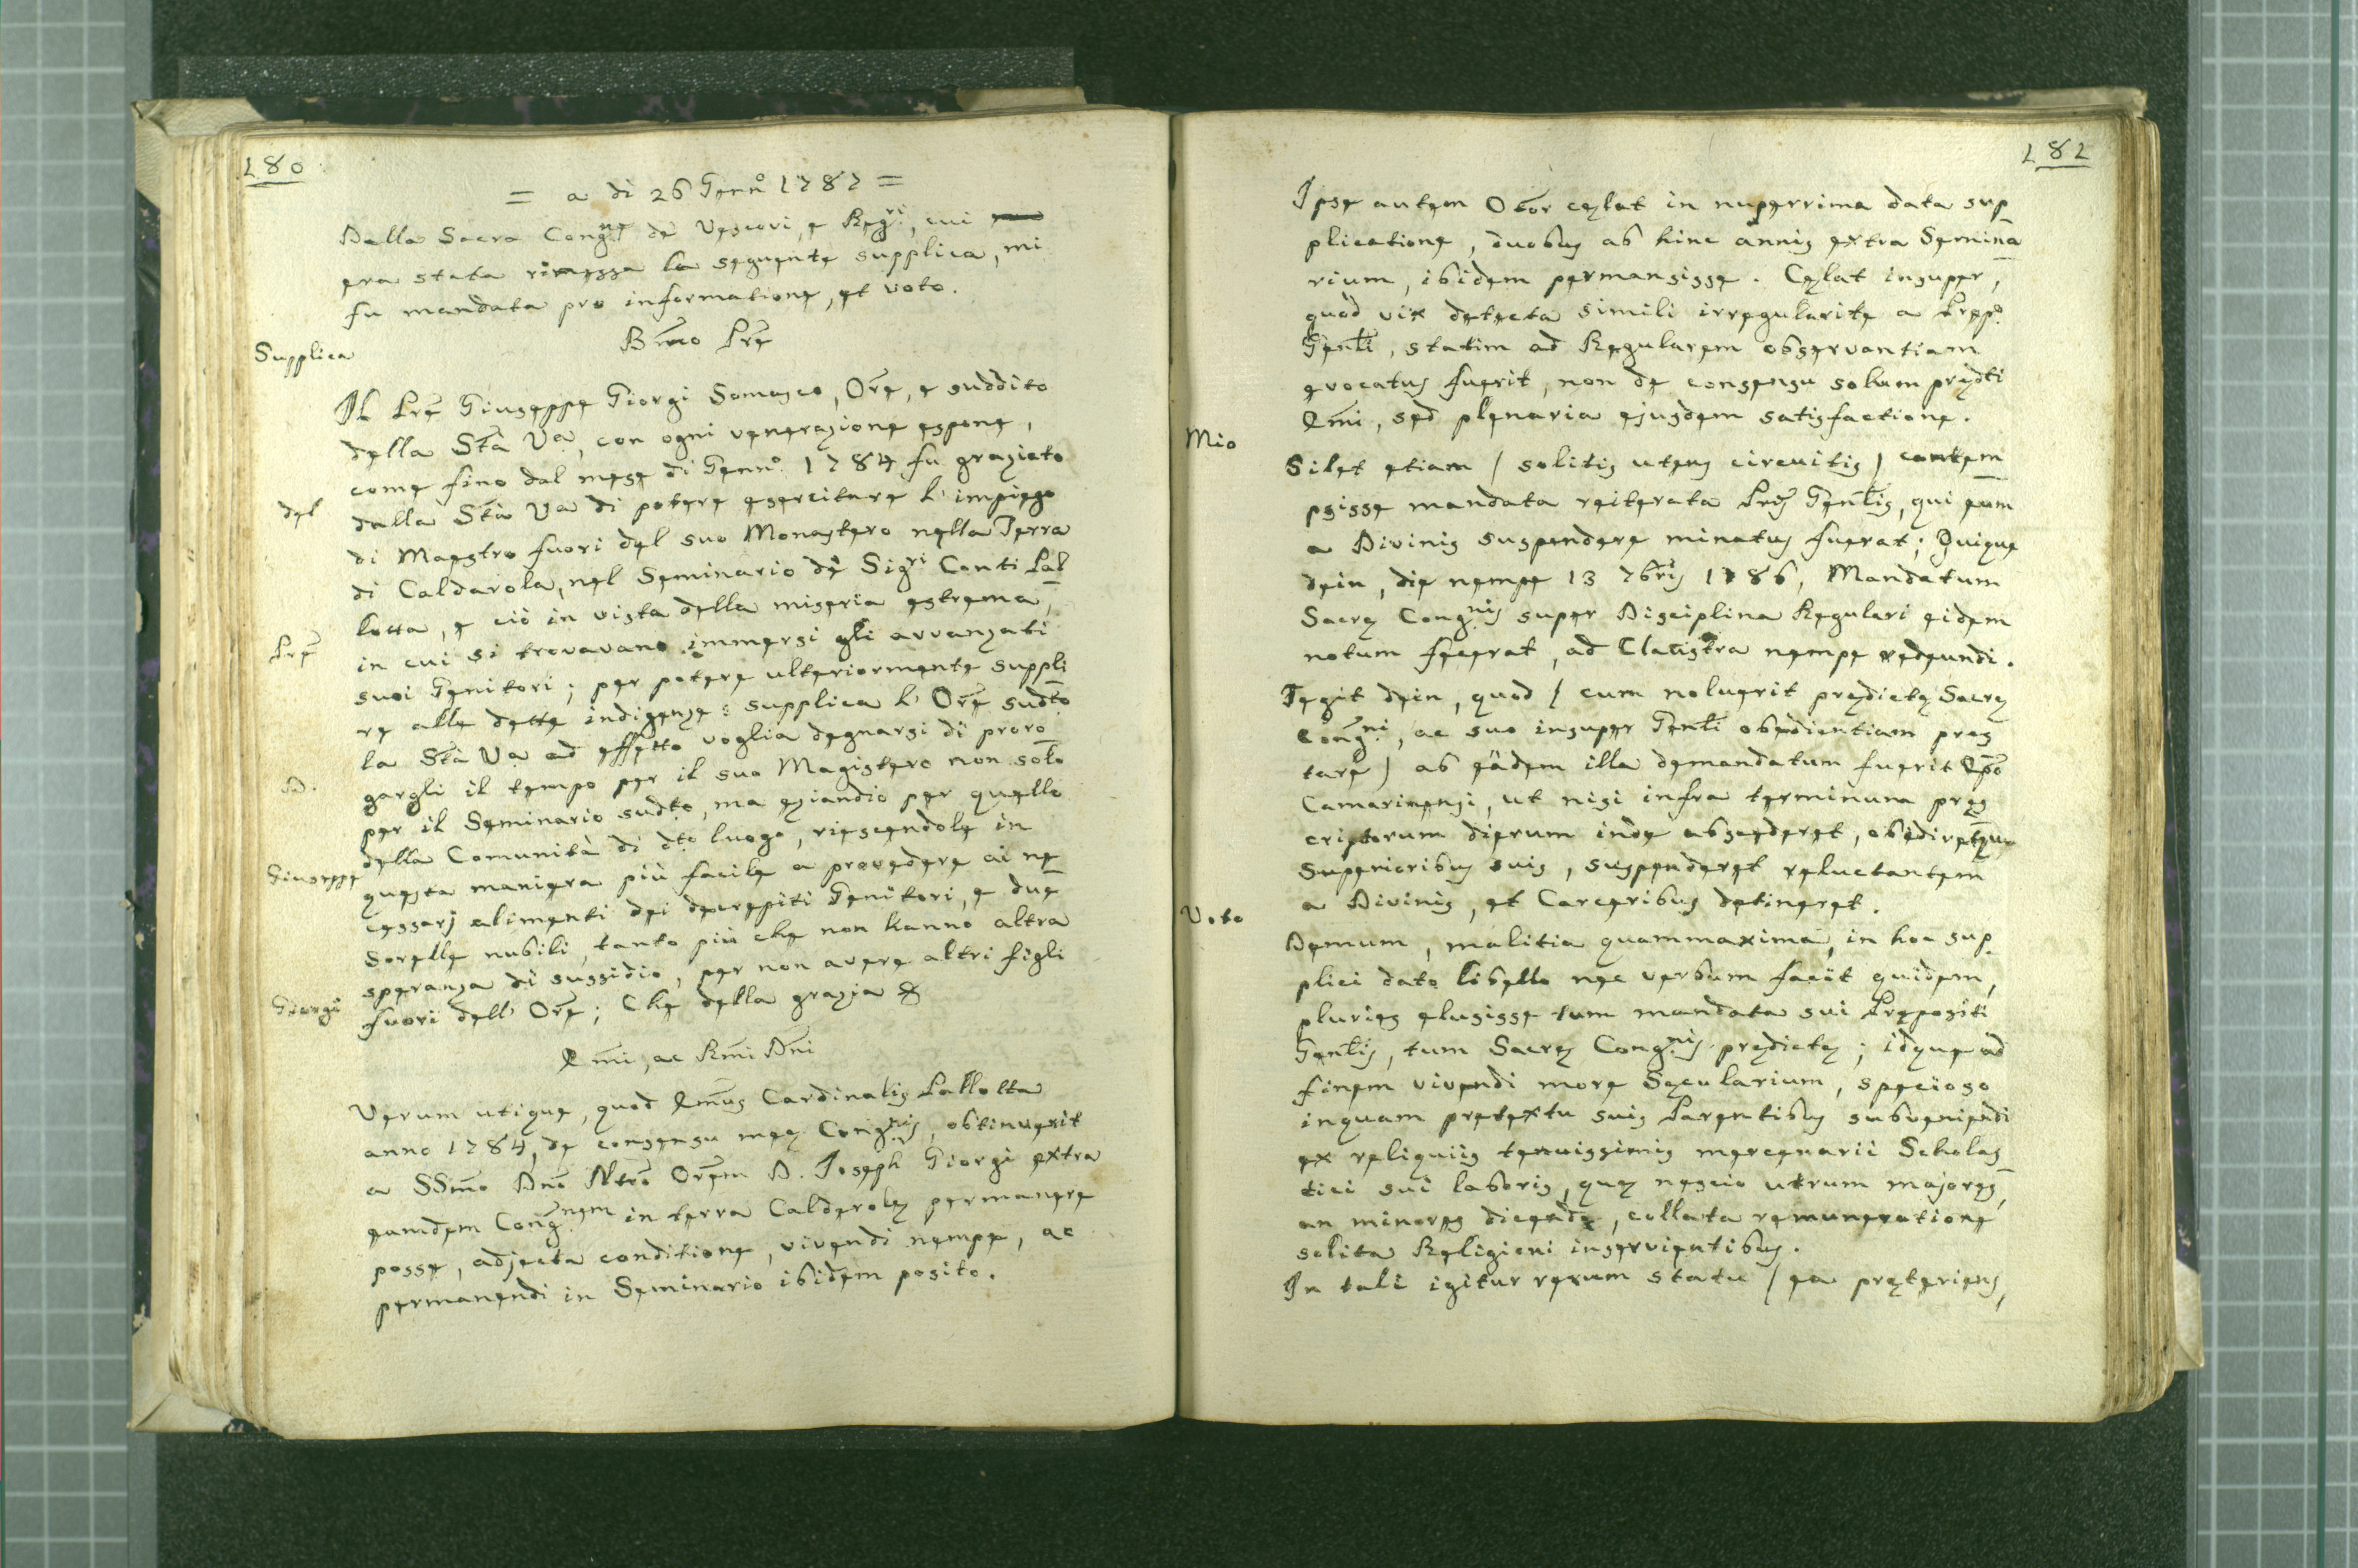 180
= a dì 26 Genn.o 1787 =
Dalla Sacra Cong.ne de' Vescovi, e Reg.ri, cui
era stata rimessa la seguente supplica, mi
fu mandata pro informatione, et voto.
Bmo Pre
Supplica
Il Pre Giuseppe Giorgi Somasco, Ore, e suddito
della Stà Va, con ogni venerazione espone,
come fino dal mese di Genn.o 1784 fu graziato
del
dalla Stà Va di potere esercitare l'impiego
di Maestro fuori del suo Monastero nella Terra
di Caldarola, nel Seminario de' Sig.ri Conti Pal
lotta, e ciò in vista della miseria estrema,
Pre
in cui si trovavano immersi gli avvanzati
suoi Genitori; per potere ulteriormente suppli
re alle dette indigenze: supplica l'Ore sudto
la Stà Va ad effetto voglia degnarsi di proro
D.
gargli il tempo per il suo Magistero non solo
per il Seminario sudto, ma eziandio per quello
della Comunità di dto luogo, riescendole in
Giuseppe
questa maniera più facile a provedere ai ne
cessarj alimenti dei decrepiti Genitori, e due
Sorelle nubili, tanto più che non hanno altra
speranza di sussidio, per non avere altri figli
Giorgi
fuori dell'Ore; Che della grazia &
Emi, ac Rmi Dni
Verum utique, quod Emus Cardinalis Pallotta
anno 1784, de consensu meę Cong.nis, obtinuerit
a SSmo Dno Ntro Orem D. Joseph Giorgi extra
eamdem Cong.nem in terra Calderolę permanere
posse, adjecta conditione, vivendi nempe, ac
permanendi in Seminario ibidem posito.
181
Ipse autem Otor cęlat in nuperrima data sup
plicatione, duobus ab hinc annis extra Semina
rium, ibidem permansisse. Cęlat insuper,
quod vix detecta simili irregularite a Prep.o
Genli, statim ad Regularem observantiam
evocatus fuerit, non de consensu solum prędti
Emi, sed plenaria ejusdem satisfactione.
Mio
Silet etiam / solitis utens circuitis / contem
psisse mandata reiterata Pris Genlis, qui eum
a Divinis suspendere minatus fuerat; Quique
dein, die nempe 13 7bris 1786, Mandatum
Sacrę Cong.nis super Disciplina Regulari eidem
notum fecerat, ad Claustra nempe redeundi.
Tegit dein, quod / cum noluerit prędictę Sacrę
Cong.ni, ac suo insuper Genli obedientiam pręs
tare / ab eädem illa demandatum fuerit Epo
Camarinensi, ut nisi infra terminum pręs
criptorum dierum inde absederet, obediretque
Superioribus suis, suspenderet reluctantem
a Divinis, et Carceribus detineret.
Voto
Demum, malitia quammaxima, in hoc sup
plici dato libello nec verbum facit quidem,
pluries elusisse tum mandata sui Prępositi
Genlis, tum Sacrę Cong.nis prędictę; idque ad
finem vivendi more Sęcularium, specioso
inquam pretextu suis Parentibus subveniendi
ex reliquiis tenuissimis mercenarii Scholas
tici sui laboris, quę nescio utrum majores,
an minores dicendę, collata remuneratione
solita Religioni inservientibus.
In tali igitur rerum statu / ea pręteriens,